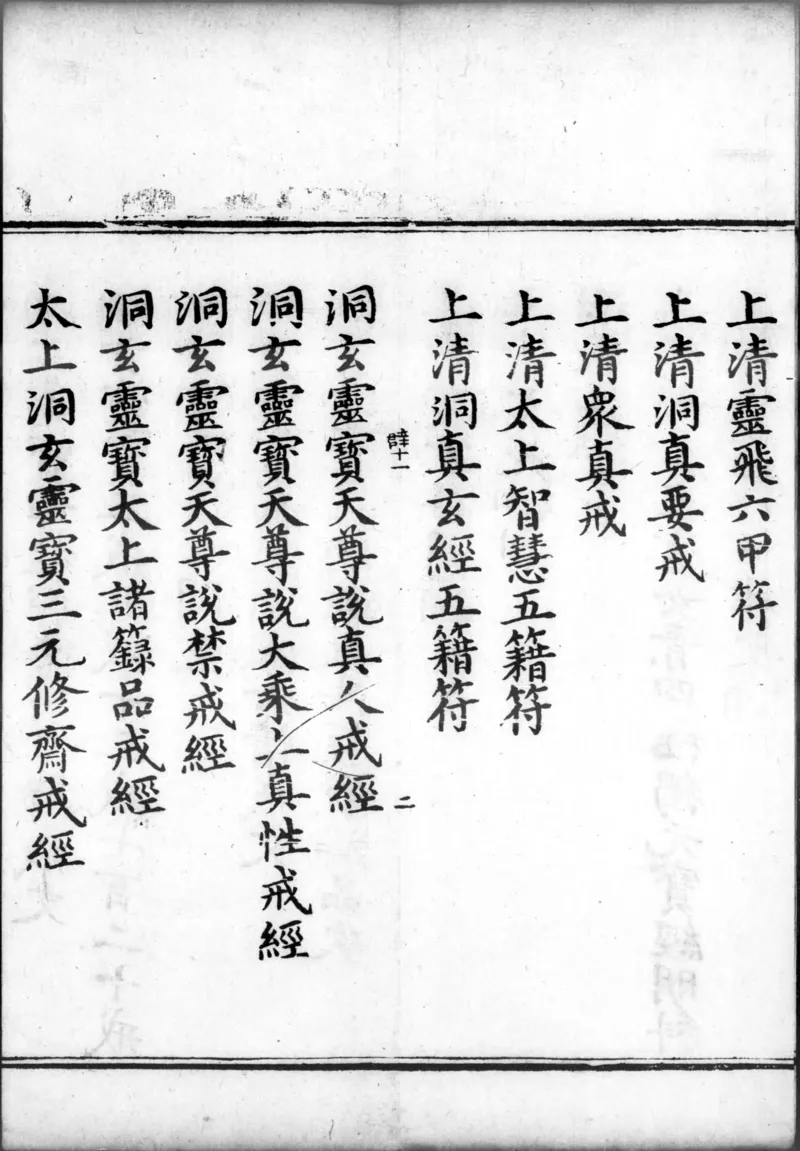 上清靈飛六甲符
上清洞真要戒
上清眾真戒
上清太上智慧五籍符
上清洞真玄經五籍符
薛十一
二
洞玄靈寶天尊說真人戒經
洞玄靈寶天尊說大乘上真性戒經
洞玄靈寶天尊說禁戒經
洞玄靈寶太上諸籙品戒經
太上洞玄靈寶三元修齋戒經